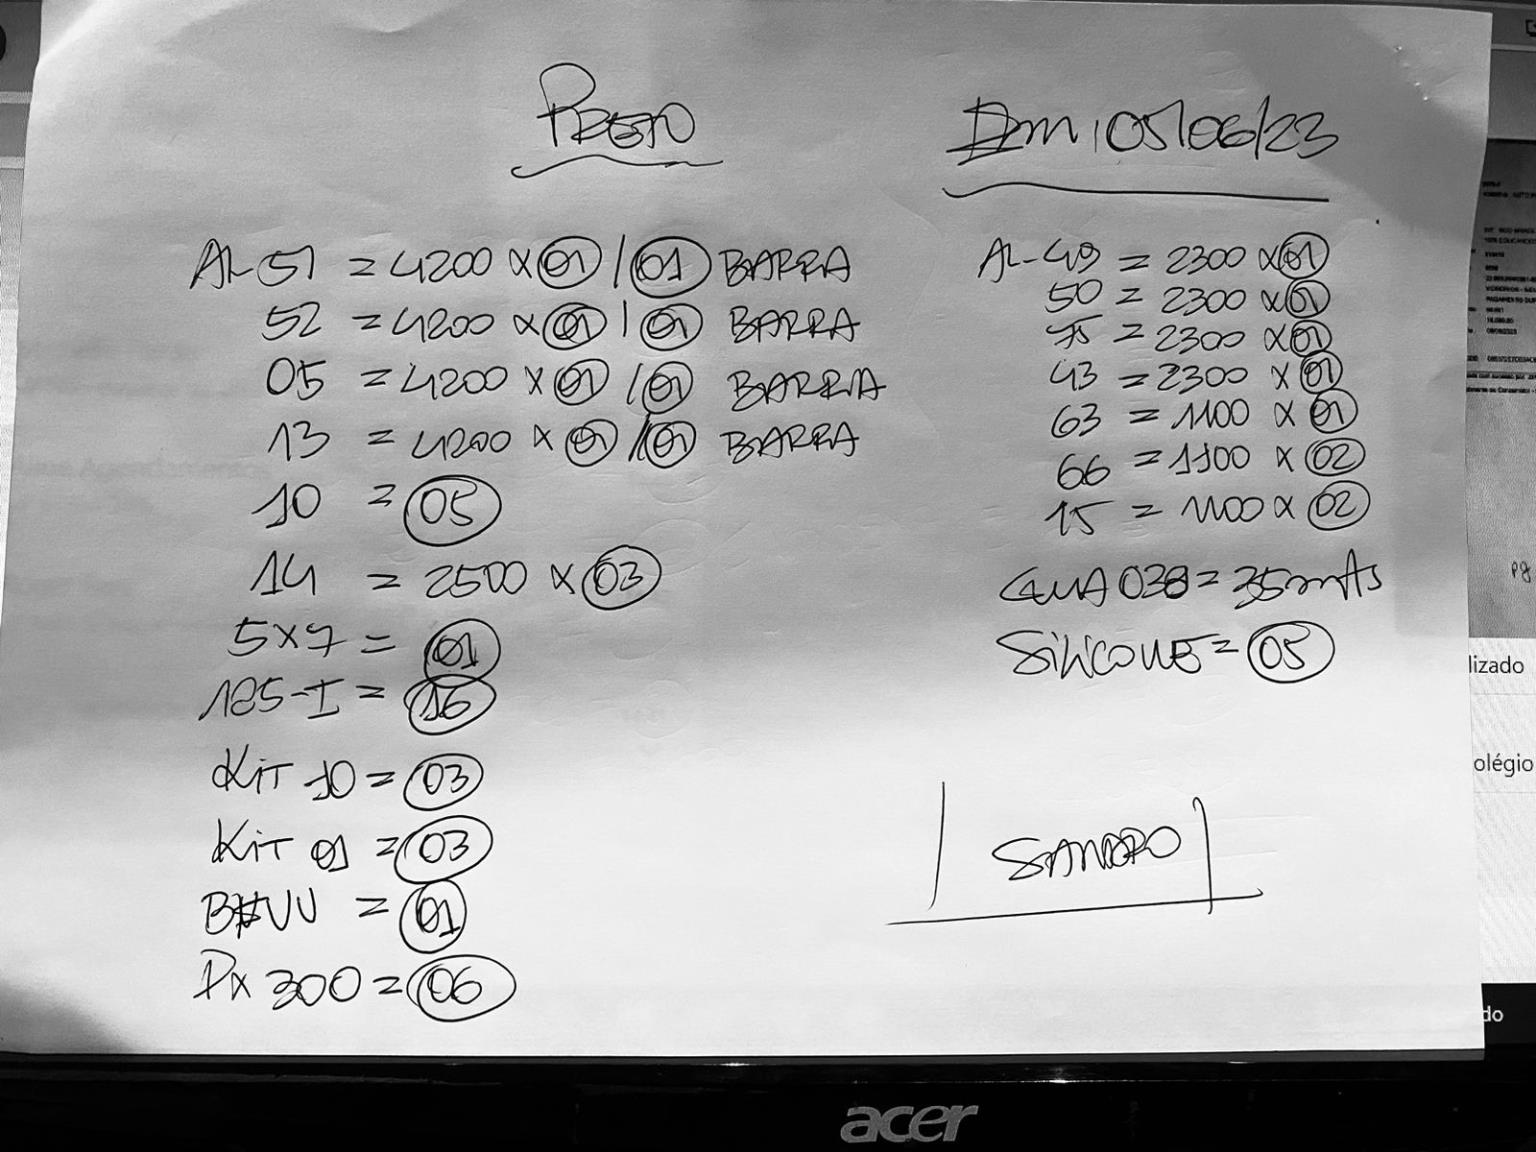 PRETO
Dm 05/06/23
AL-51 = 4200 x 01 / 01 BARRA
52 = 4200 x 01 / 01 BARRA
05 = 4200 x 01 / 01 BARRA
13 = 4200 x 01 / 01 BARRA
10 = 05
14 = 2500 x 03
5x7 = 01
185-I = 16
KiT 10 = 03
KiT 01 = 03
= 01
Px 300 = 06
AL-49 = 2300 x 01
50 = 2300 x 01
75 = 2300 x 01
43 = 2300 x 01
63 = 1100 x 01
66 = 1100 x 02
15 = 1100 x 02
038 = 35 mts
SiLiCONE = 05
SANDRO
pg
lizado
olégio
do
acer